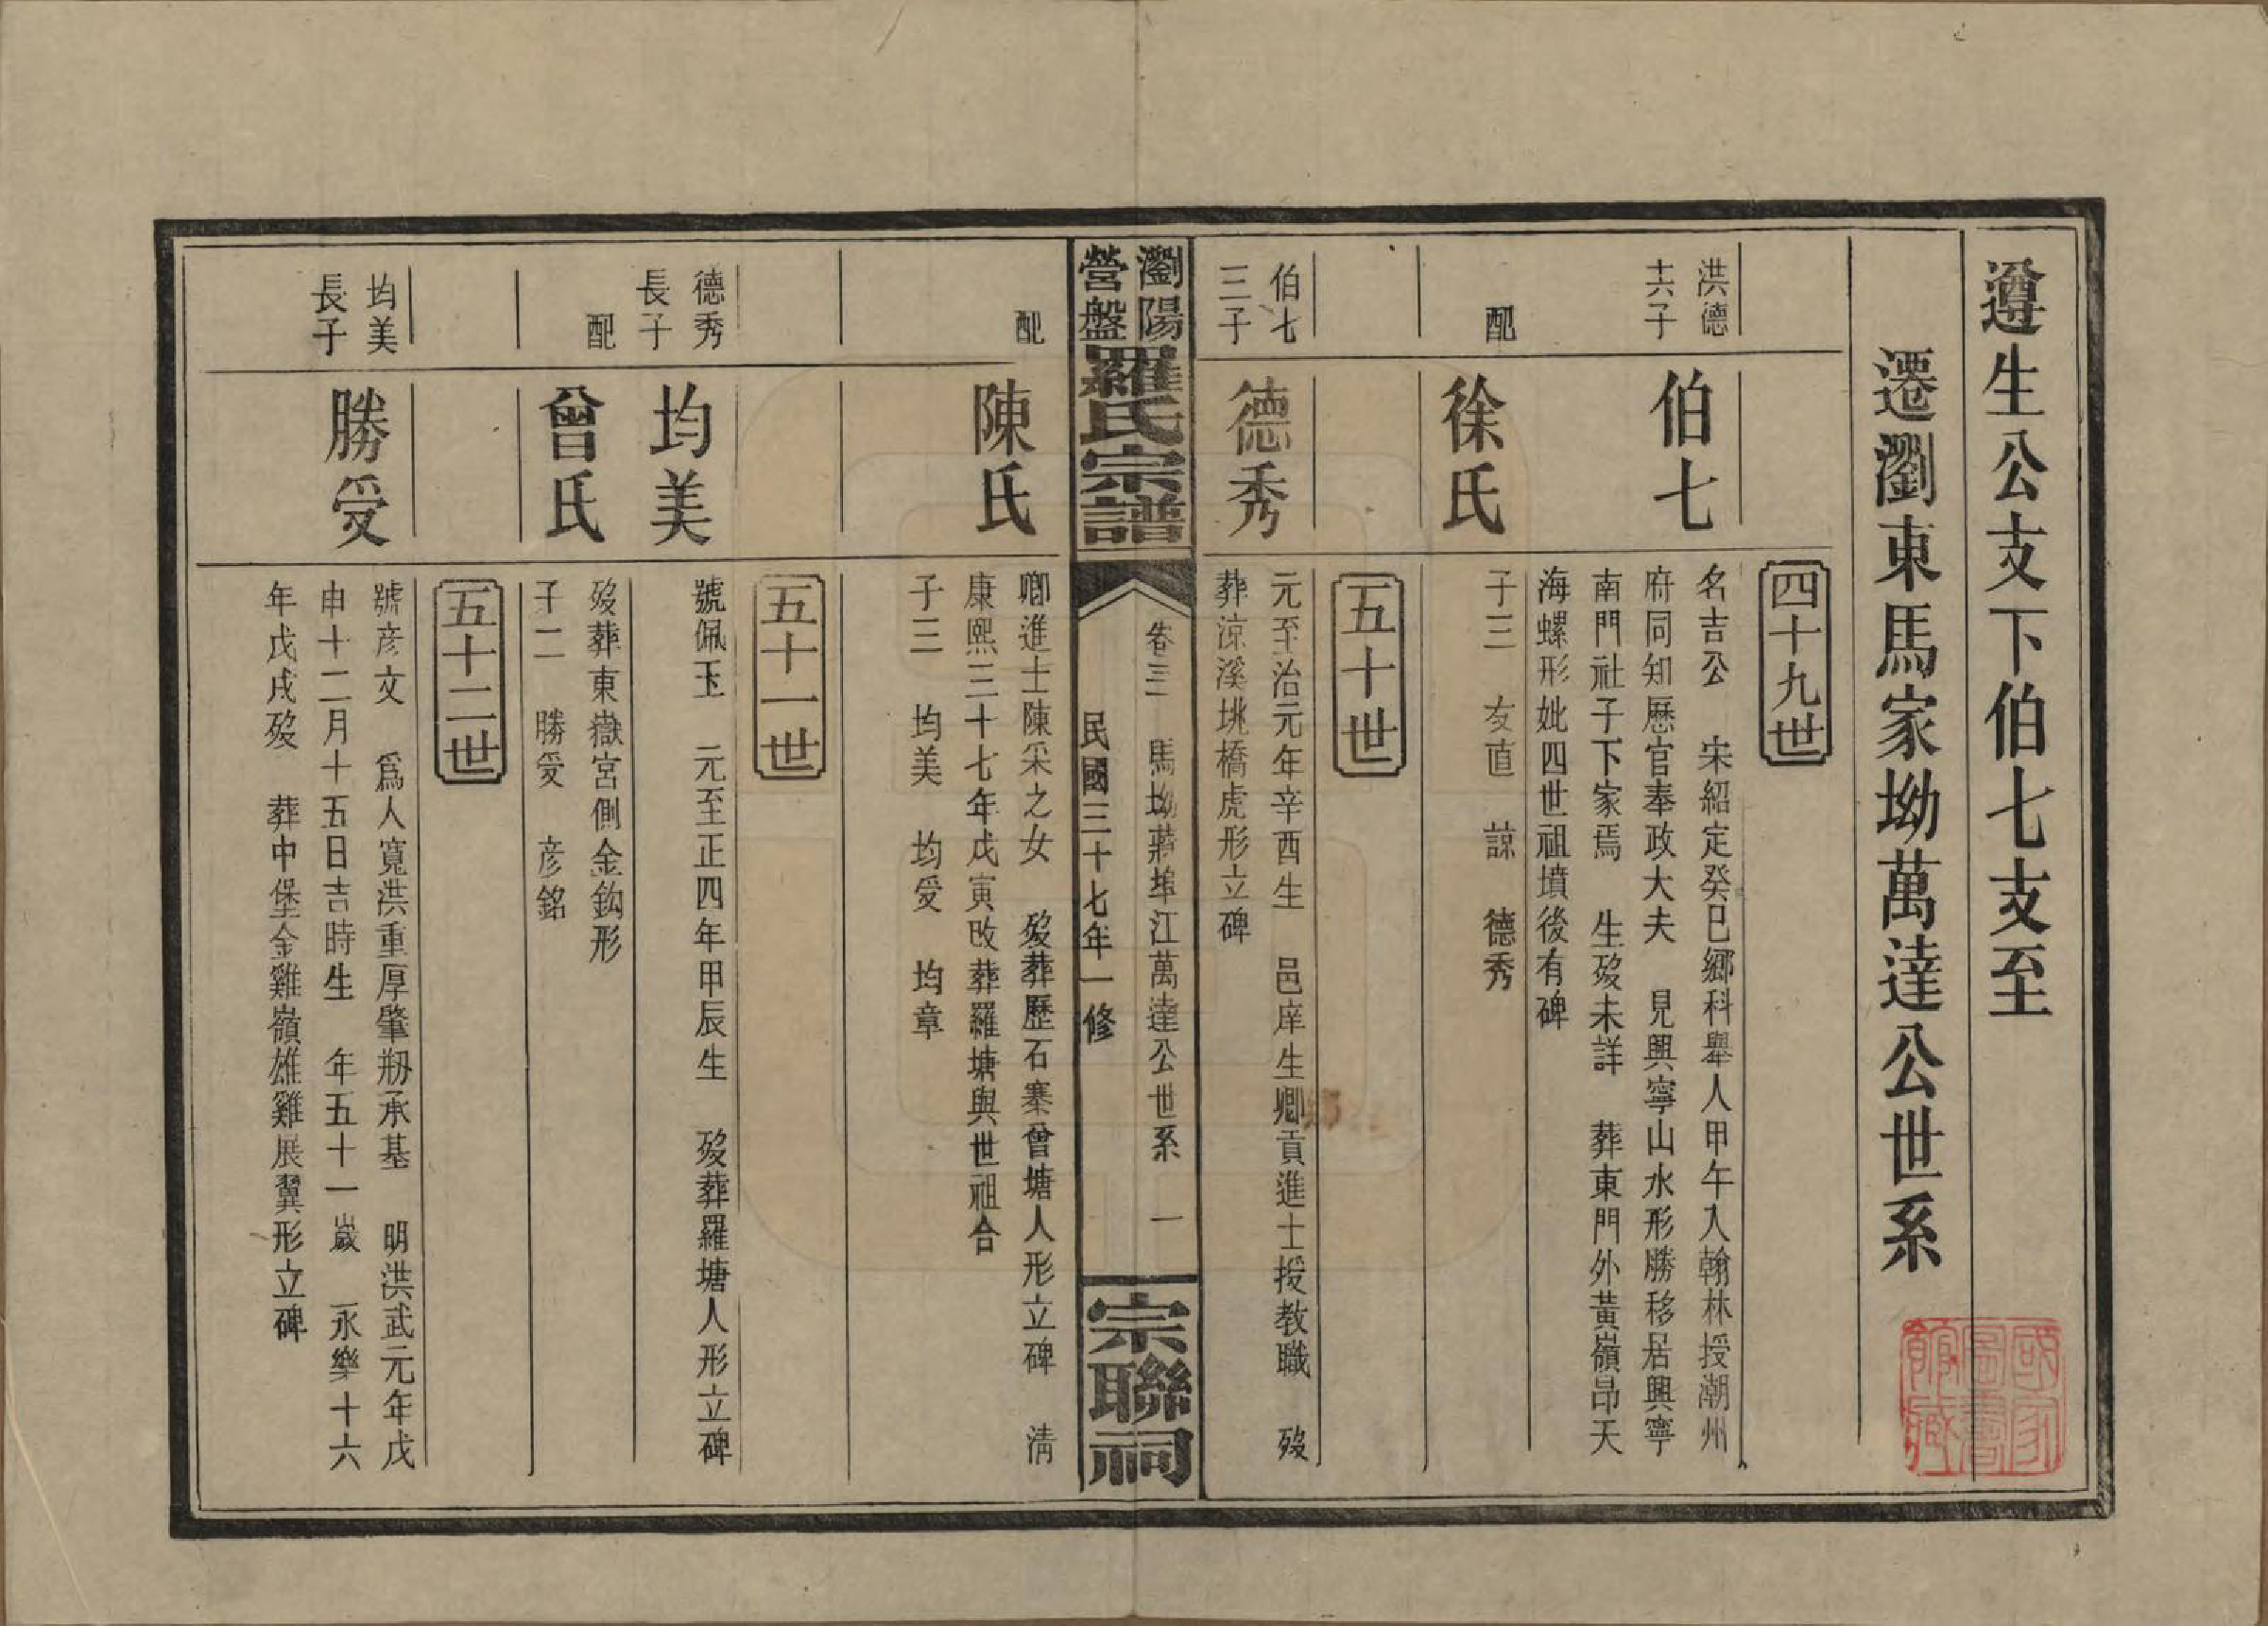 遵生公支下伯七支至
遷瀏東馬家坳萬達公世系
四十九世
洪德
十六子
伯七
名吉公　宋紹定癸巳鄉科舉人甲午入翰林授潮州
府同知歷官奉政大夫　見興寧山水形勝移居興寧
南門社子下家焉　生歿未詳　葬東門外黃嶺昂天
海螺形妣四世祖墳後有碑
配
徐氏
子三　友直　諒　德秀
五十世
伯七
三子
德秀
元至治元年辛酉生　邑庠生鄉貢進士授教職　歿
葬涼溪垗橋虎形立碑
瀏陽
營盤
羅氏宗譜
卷三　馬坳蔣埠江萬達公世系　一
民國三十七年一修
宗聯祠
配
陳氏
鄉進士陳采之女　歿葬歷石寨曾塘人形立碑　清
康熙三十七年戊寅改葬羅塘與世祖合
子三　均美　均受　均章
五十一世
德秀
長子
均美
號佩玉　元至正四年甲辰生　歿葬羅塘人形立碑
配
曾氏
歿葬東嶽宮側金鈎形
子二　勝受　彥銘
五十二世
均美
長子
勝受
號彥文　爲人寬洪重厚肇剏承基　明洪武元年戊
申十二月十五日吉時生　年五十一歲　永樂十六
年戊戌歿　葬中堡金雞嶺雄雞展翼形立碑
國家
圖書
館藏